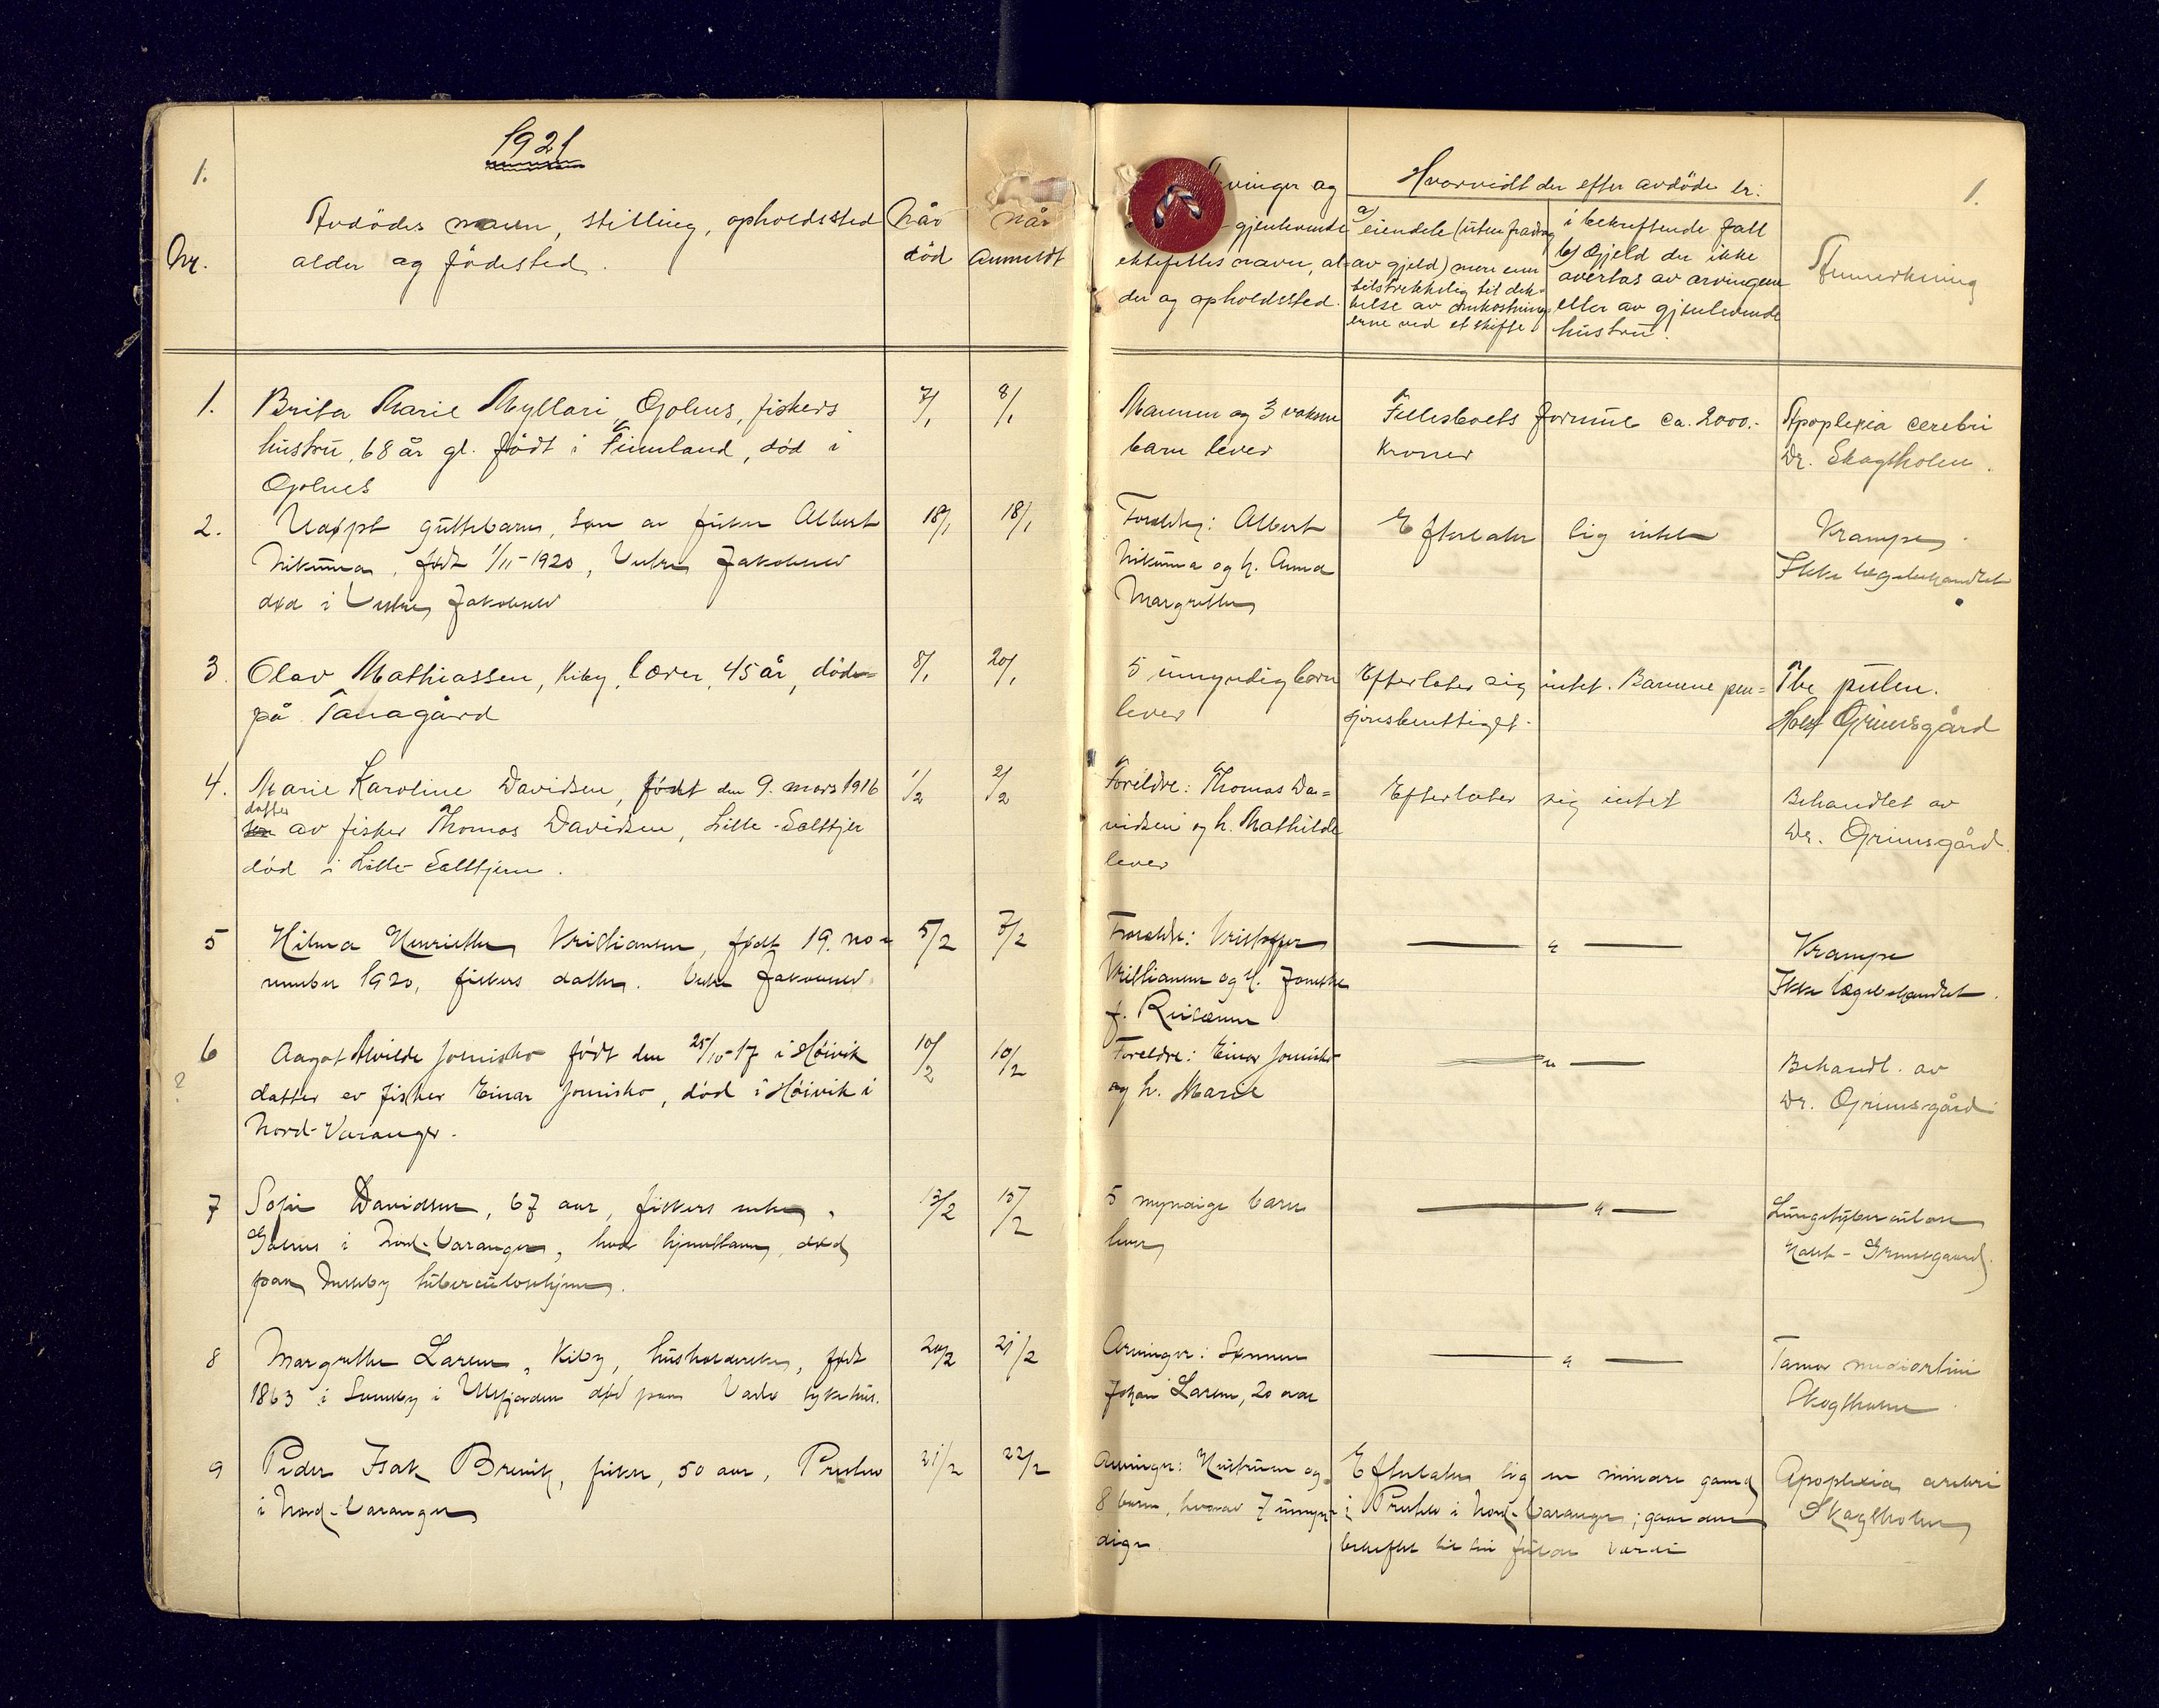 1921
1.
Avdödes navn, stilling, opholdssted
alder og födested.
Nr.
Når
död
når
anmeldt
Arvinger og
gjenlevende
ektefelles navn, al=
der og opholdssted.
Hvorvidt der efter avdöde er:
a) eiendele (uten fradrag
av gjeld) mere enn
tilstrekkelig til dek-
kelse av omkostning-
erne ved et skifte
i bekreftende fall
b) Gjeld der ikke
overtas av arvingene
eller av gjenlevende
hustru.
Anmerkning
1.
1. Brita Marie Myllari, Golnes, fiskers
hustru, 68 år gl. født i Finnland, död i
Golnes
7/1
8/1
Mannen og 3 voksne
barn lever
Fellesboets formue ca. 2000.-
Kroner
Apoplexia cerebri
Dr. Skogsholm.
2. Udøpt guttebarn, søn av fisker Albert
Nikuma, født 1/11-1920, Vestre Jakobselv
død i Vestre Jakobselv
18/1
18/1
Foreldre: Albert
Nikuma og h. Anna
Margrethe
Efterlater sig intet
Krampe
Ikke lægebehandlet
3. Olav Mathiassen, Kiby, lærer, 45 år, döde
på Tanagård
8/1
20/1
5 umyndig barn
lever
Efterlater sig intet. Barnene pen=
sjonsberettiget.
Tbc pulm.
Holst Grimsgård
4. Marie Karoline Davidsen, født den 9. mars 1916
datter
av fisker Thomas Davidsen, Lille-Salttjer
död i Lille-Salttjern.
1/2
2/2
Foreldre: Thomas Da=
vidsen og h. Mathilde
lever
Efterlater sig intet
Behandlet av
Dr. Grimsgård.
5 Hilma Henriette Kristiansen, født 19. no-
vember 1920, fiskers datter. Vestre Jakobselv
5/2
7/2
Foreldre: Kristoffer
Kristiansen og h.
f.
— " —
Krampe
Ikke lægebehandlet.
6 Aagot Alvilde Jomisko født den 25/10-17 i Höivik
datter av fisker Einar Jomisko, död i Höivik i
Nord-Varanger.
?
10/2
10/2
Foreldre: Einar Jomisko
og h. Marie
— " —
Behandl. av
Dr. Grimsgård
7 Sofie Davidsen, 67 aar, fiskers enke,
Golnes i Nord-Varanger, hvor hjemstavn, død
paa tuberculosehjem.
13/2
15/2
5 myndige barn
lever
— " —
Lungetuberculose
Holst-Grimsgaard
8 Margrethe Larsen, Kiby, husholderske, født
1863 i i Ulsfjorden død paa Vadsø sykehus.
20/2
21/2
Arvinger: Sønnen
Johan Larsen, 20 aar
— " —
Skogsholm
9 Peder Isak Brevik, fisker, 50 aar,
i Nord-Varanger
21/2
22/2
Arvinger: Hustruen og
8 barn, hvorav 7 umyn-
dige.
Efterlater sig en mindre gaard
i i Nord-Varanger; gaarden
beheftet til sin fulde værdi
Apoplexia cerebri
Skogsholm